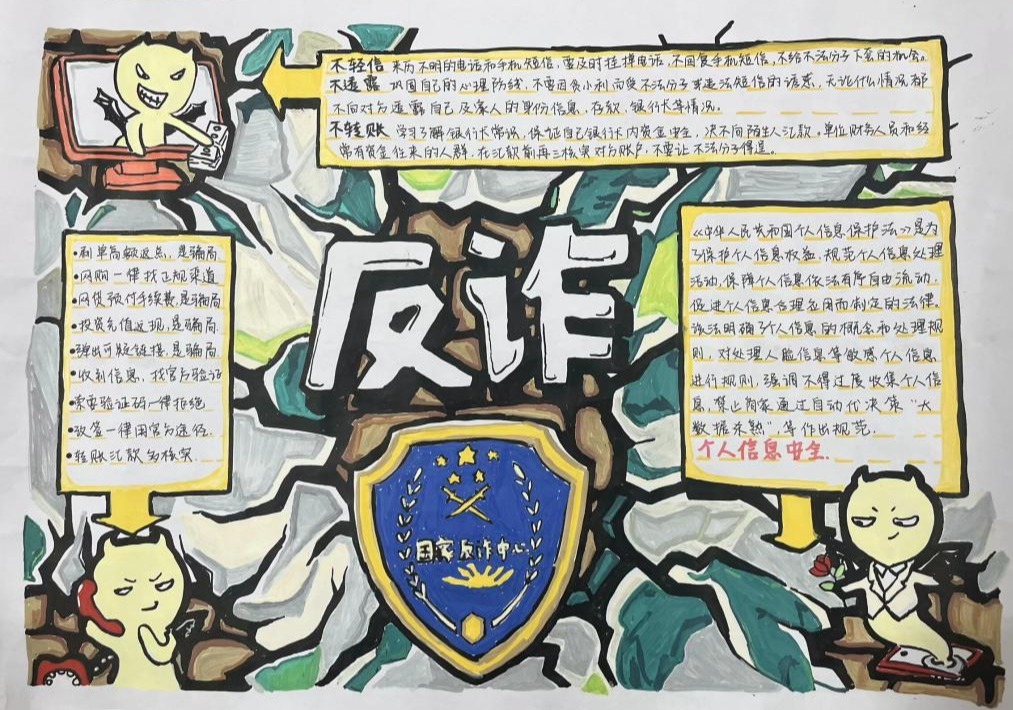 不轻信 来历不明的电话和手机短信,要及时挂掉电话,不回复手机短信,不给不法分子下套的机会.
不透露 巩固自己的心理防线,不要因贪小利而受不法分子或违法短信的诱惑,无论什么情况都
不向对方透露自己及家人的身份信息、存款、银行卡等情况。
不转账 学习了解银行卡常识,保证自己银行卡内资金安全,决不向陌生人汇款。单位财务人员和经
常有资金往来的人群,在汇款前再三核实对方账户,不要让不法分子得逞。
反诈
•刷单高额返点,是骗局
•网购一律找正规渠道
•网贷预付手续费,是骗局
•投资充值返现,是骗局
•弹出可疑链接,是骗局
•收到信息,找官方验证
•索要验证码一律拒绝
•改签一律用官方途径.
•转账汇款多核实.
《中华人民共和国个人信息保护法》是为
了保护个人信息权益,规范个人信息处理
活动,保障个人信息依法有序自由流动,
促进个人信息合理应用而制定的法律.
该法明确了个人信息的概念和处理规
则,对处理人脸信息等敏感个人信息
进行规则,强调不得过度收集个人信
息,禁止商家通过自动化决策“大
数据杀熟”,等作出规范.
个人信息安全.
国家反诈中心